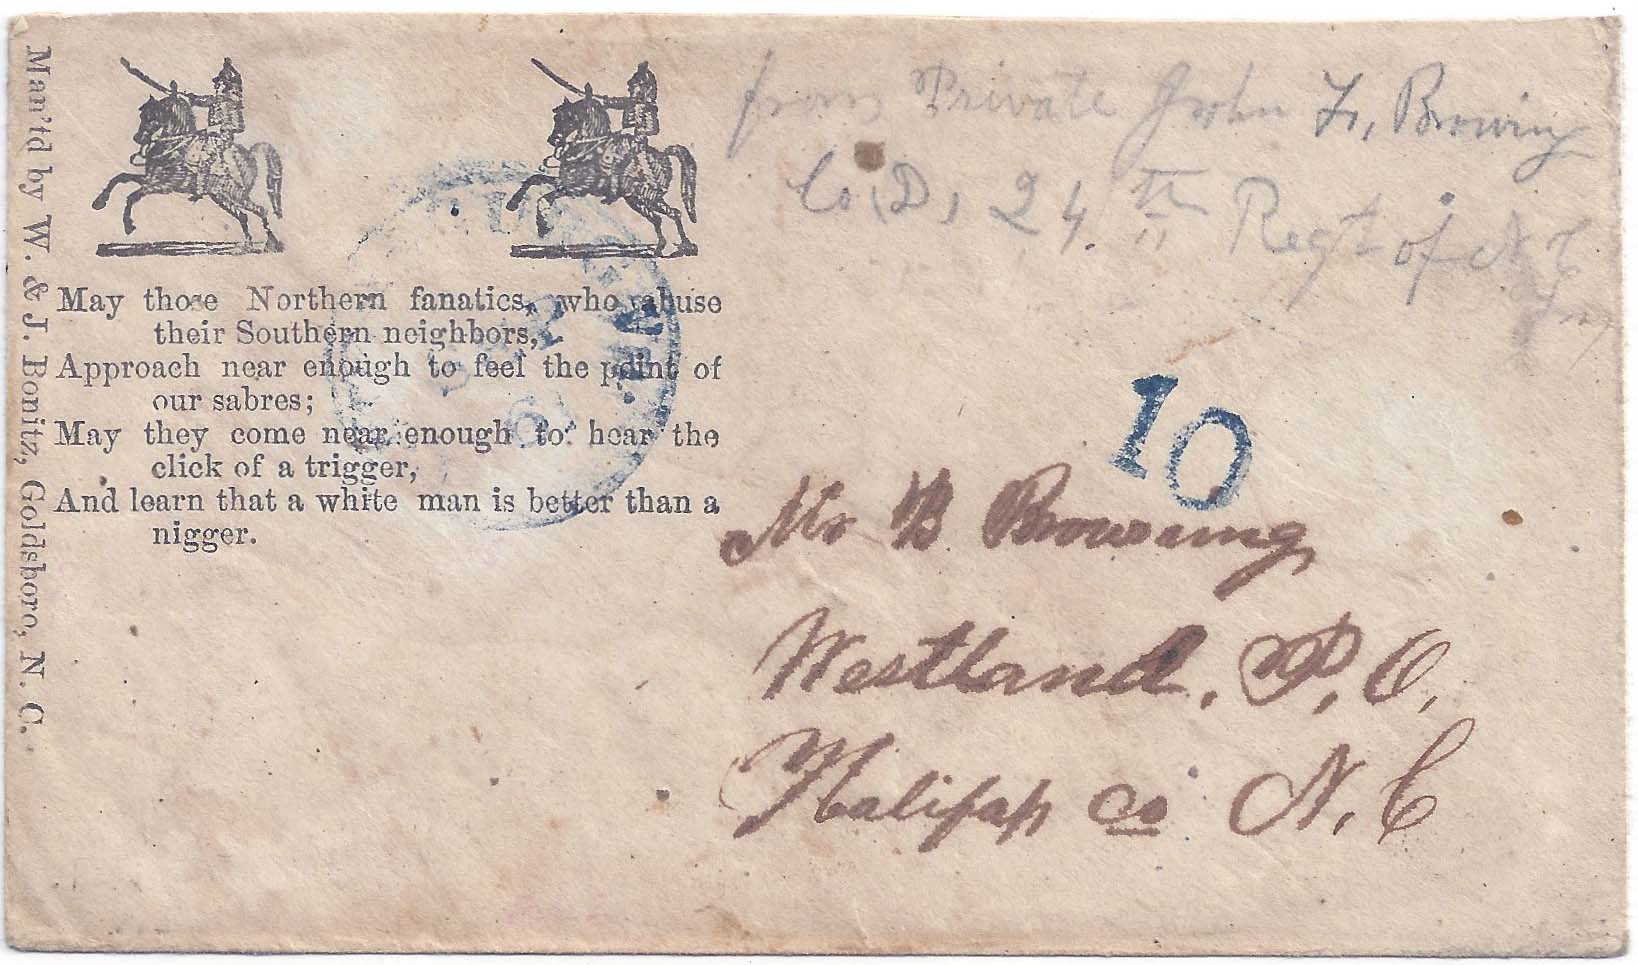 Man'td by W. & J. Bonitz, Goldsboro, N. C.
May those Northern fanatics, who abuse
their Southern neighbors,
Approach near enough to feel the point of
our sabres;
May they come near enough to hear the
click of a trigger,
And learn that a white man is better than a
nigger.
from Private John F, Browing
Co D, 24th Regt of N C
10
Mr B Browning
Westland, P, O,
Halifax co N, C